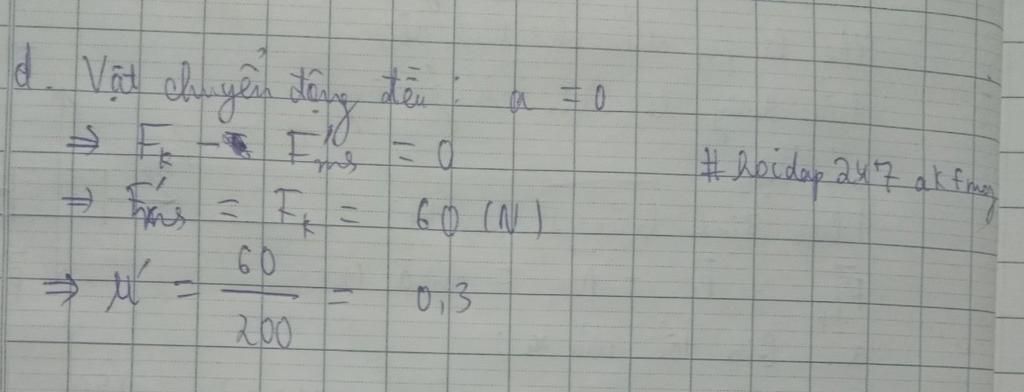 d. Vật chuyển động đều : a = 0
⇒ Fk - F'ms = 0
⇒ F'ms = Fk = 60 (N)
⇒ μ' = 60/200 = 0,3
# hoidap 247